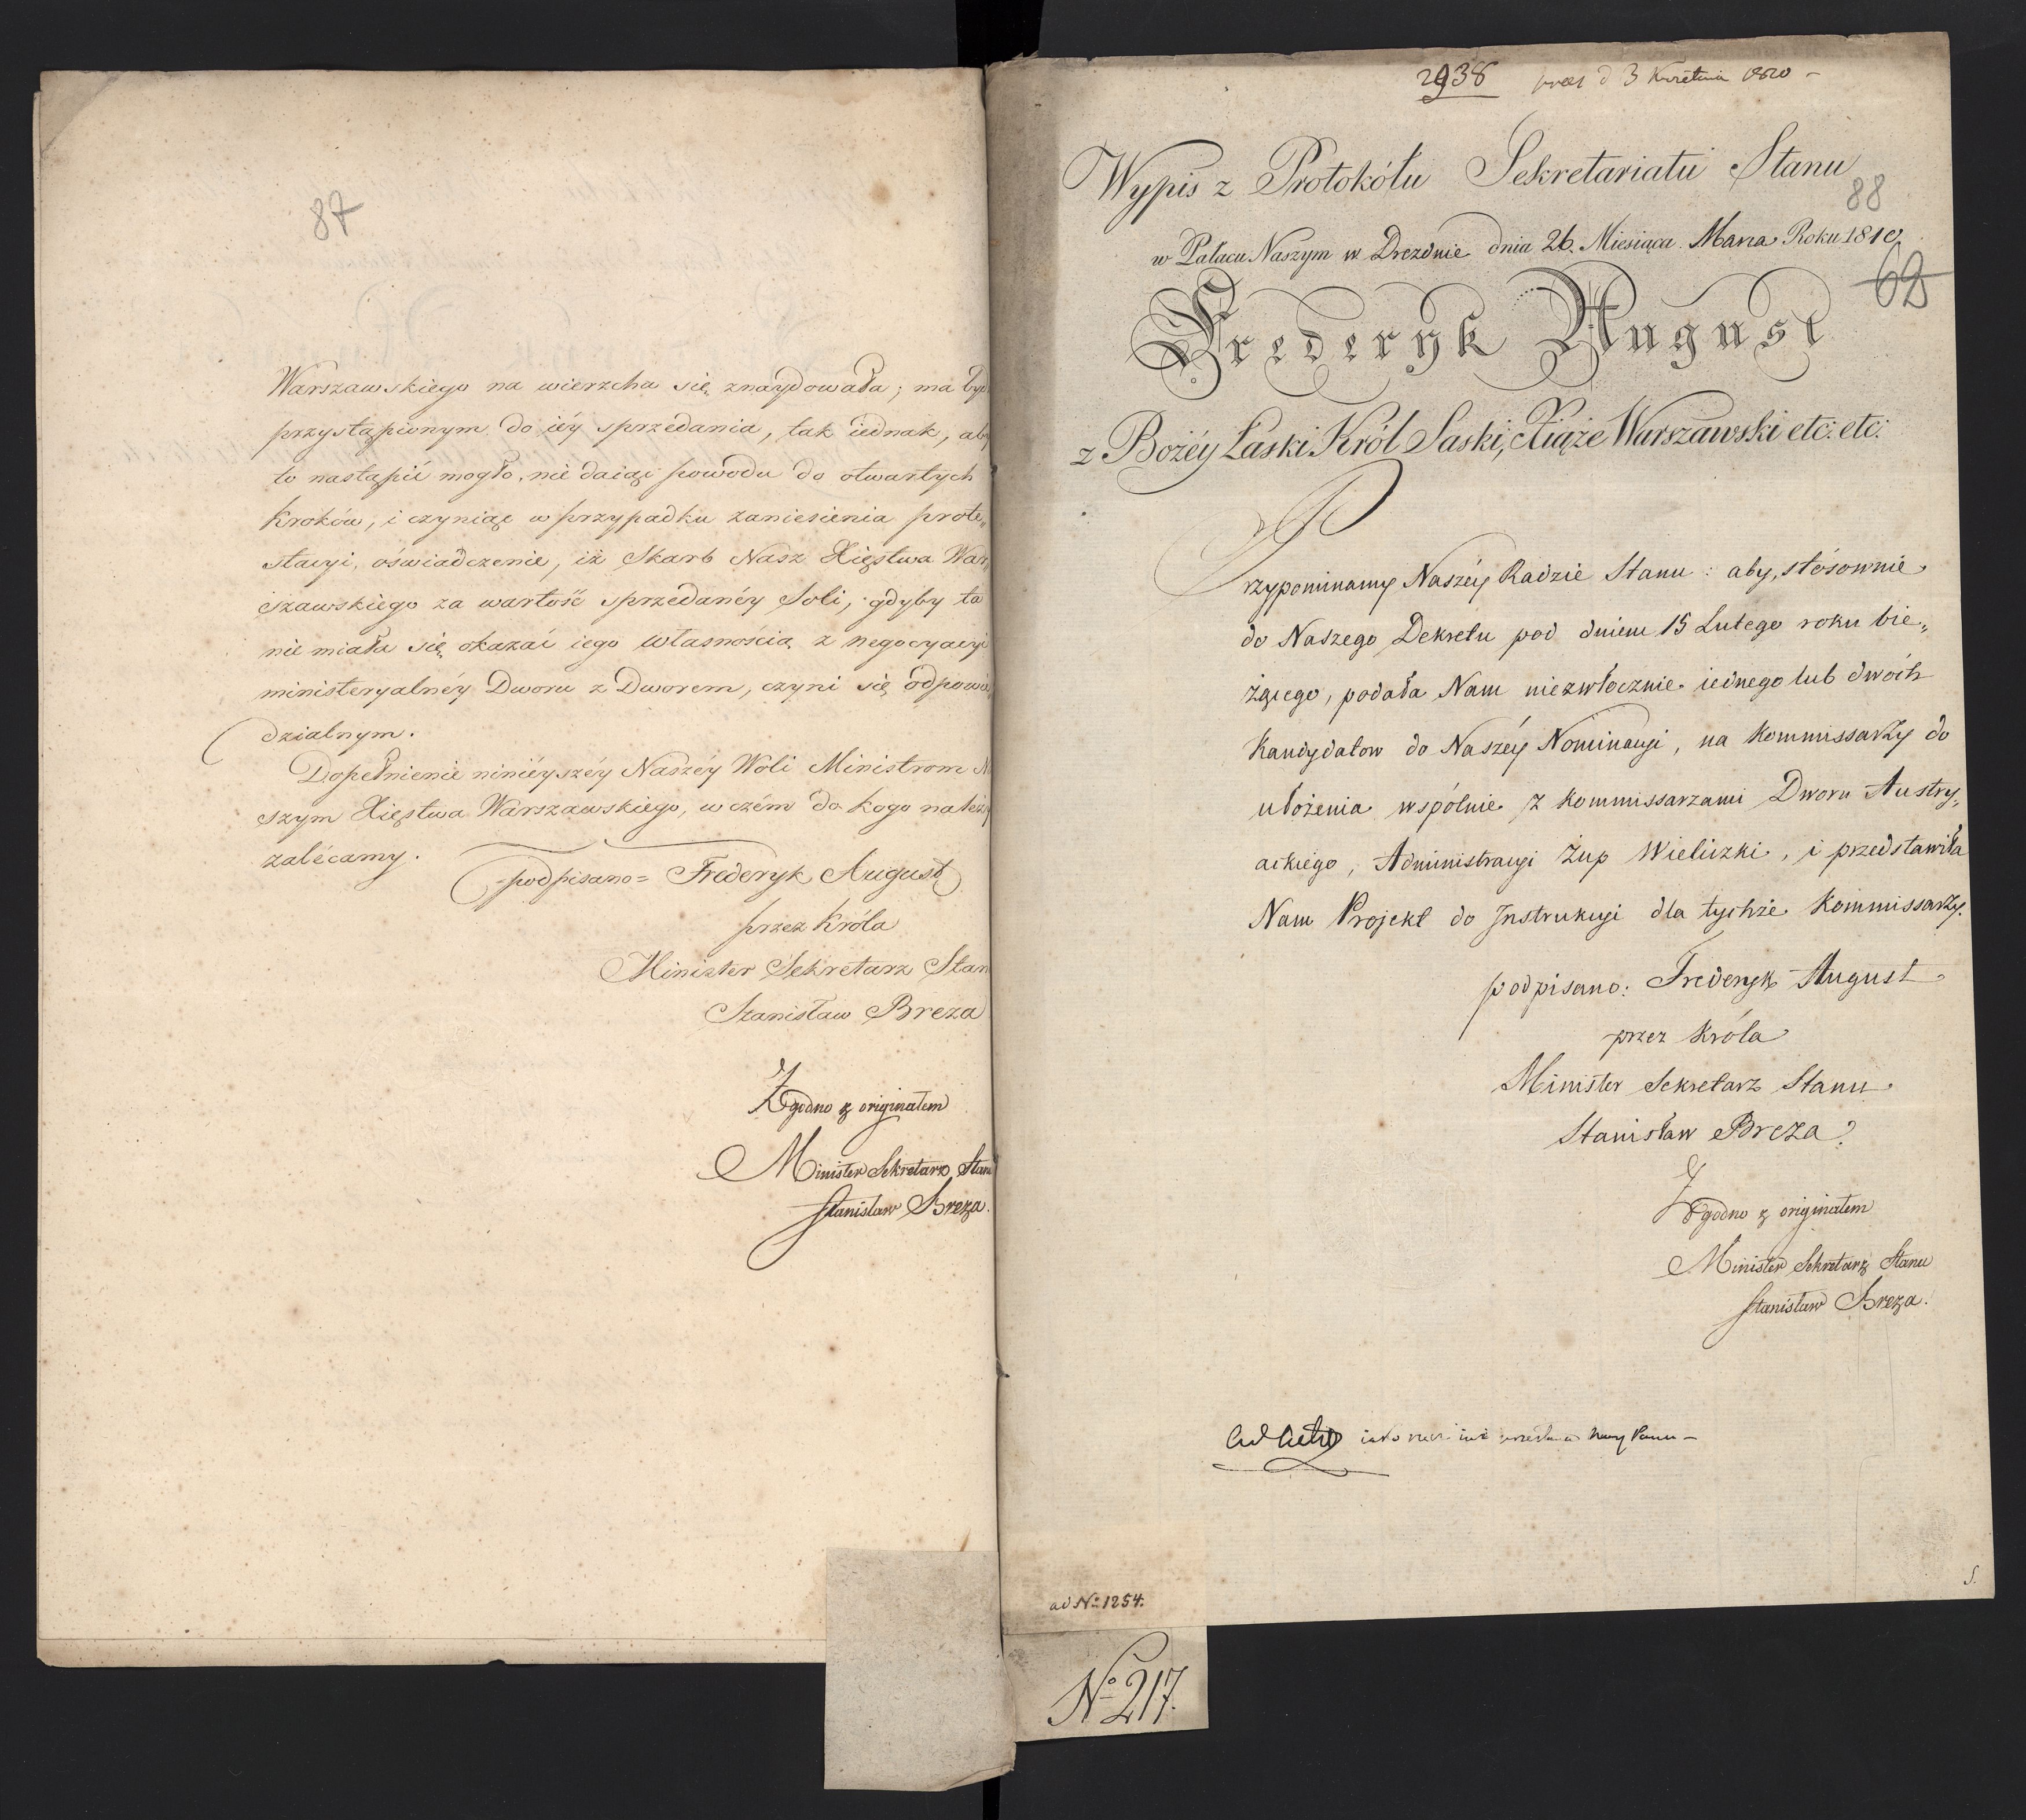 87
Warszawskiego na wierzchu się znaydowała; ma być
przystąpionym do iéy sprzedania, tak iednak, aby
to nastąpić mogło, nie daiąc powodu do otwartych
kroków, i czyniąc w przypadku zaniesienia prote„
stacyi, oświadczenie, iż Skarb Nasz Xięstwa War„
szawskiego za wartość sprzedanéy Soli, gdyby ta
nie miała się okazać iego własnością z negocyacyi
ministeryalnéy Dworu z Dworem, czyni się odpowie„
dzialnym.
Dopełnienie ninieyszéy Naszéy Woli Ministrom Na
szym Xięstwa Warszawskiego, w czém do kogo należy
zalécamy.
=podpisano= Frederyk August
przez Króla
Minister Sekretarz Stan
Stanisław Breza
Zgodno z originałem
Minister Sekretarz Stanu
Stanisław Breza.
2938 prez d 3 Kwietnia 1810 -
Wypis z Protokółu Sekretariatu Stanu
88
w Pałacu Naszym w Dreznie dnia 26. Miesiąca Marca Roku 1810.
62
Frederyk August
z Bożéy Łaski Król Saski, Xiąże Warszawski etc: etc:
Przypominamy Naszéy Radzie Stanu: aby, stósownie
do Naszego Dekretu pod dniem 15 Lutego roku bie„
żącego, podała Nam niezwłocznie iednego lub dwóch
Kandydatow do Naszéy Nominacyi, na Kommissarzy do
ułożenia wspólnie z Kommissarzami Dworu Austry„
ackiego, Administracyi Żup Wieliczki, i przedstawiła
Nam Projekt do Instrukcyi dla tychże Kommissarzy.
podpisano: Frederyk August
przez Króla
Minister Sekretarz Stanu
Stanisław Breza
Zgodno z originałem
Minister Sekretarz Stanu
Stanisław Breza.
ad Acta iako iuż
S.
ad No 1254.
No 217.